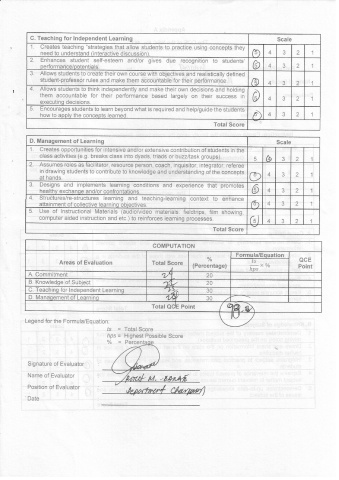 C. Teaching for Independent Learning Scale
1. Creates teaching strategies that allow students to practice using concepts they
need to understand (interactive discussion). 5 4 3 2 1
2. Enhances student self-esteem and/or gives due recognition to students'
performance/potentials. 5 4 3 2 1
3. Allows students to create their own course with objectives and realistically defined
student-professor rules and make them accountable for their performance. 5 4 3 2 1
4. Allows students to think independently and make their own decisions and holding
them accountable for their performance based largely on their success in
executing decisions. 5 4 3 2 1
5. Encourages students to learn beyond what is required and help/guide the students
how to apply the concepts learned. 5 4 3 2 1
Total Score
D. Management of Learning Scale
1. Creates opportunities for intensive and/or extensive contribution of students in the
class activities (e.g. breaks class into dyads, triads or buzz/task groups). 5 4 3 2 1
2. Assumes roles as facilitator, resource person, coach, inquisitor, integrator, referee
in drawing students to contribute to knowledge and understanding of the concepts
at hands. 5 4 3 2 1
3. Designs and implements learning conditions and experience that promotes
healthy exchange and/or confrontations. 5 4 3 2 1
4. Structures/re-structures learning and teaching-learning context to enhance
attainment of collective learning objectives. 5 4 3 2 1
5. Use of Instructional Materials (audio/video materials: fieldtrips, film showing,
computer aided instruction and etc.) to reinforces learning processes. 5 4 3 2 1
Total Score
COMPUTATION
Areas of Evaluation Total Score % (Percentage) Formula/Equation ts/hps × % QCE Point
A. Commitment 20
B. Knowledge of Subject 20
C. Teaching for Independent Learning 30
D. Management of Learning 30
Total QCE Point
Legend for the Formula/Equation:
ts = Total Score
hps = Highest Possible Score
% = Percentage
Signature of Evaluator
Name of Evaluator
Position of Evaluator Department Chairman
Date